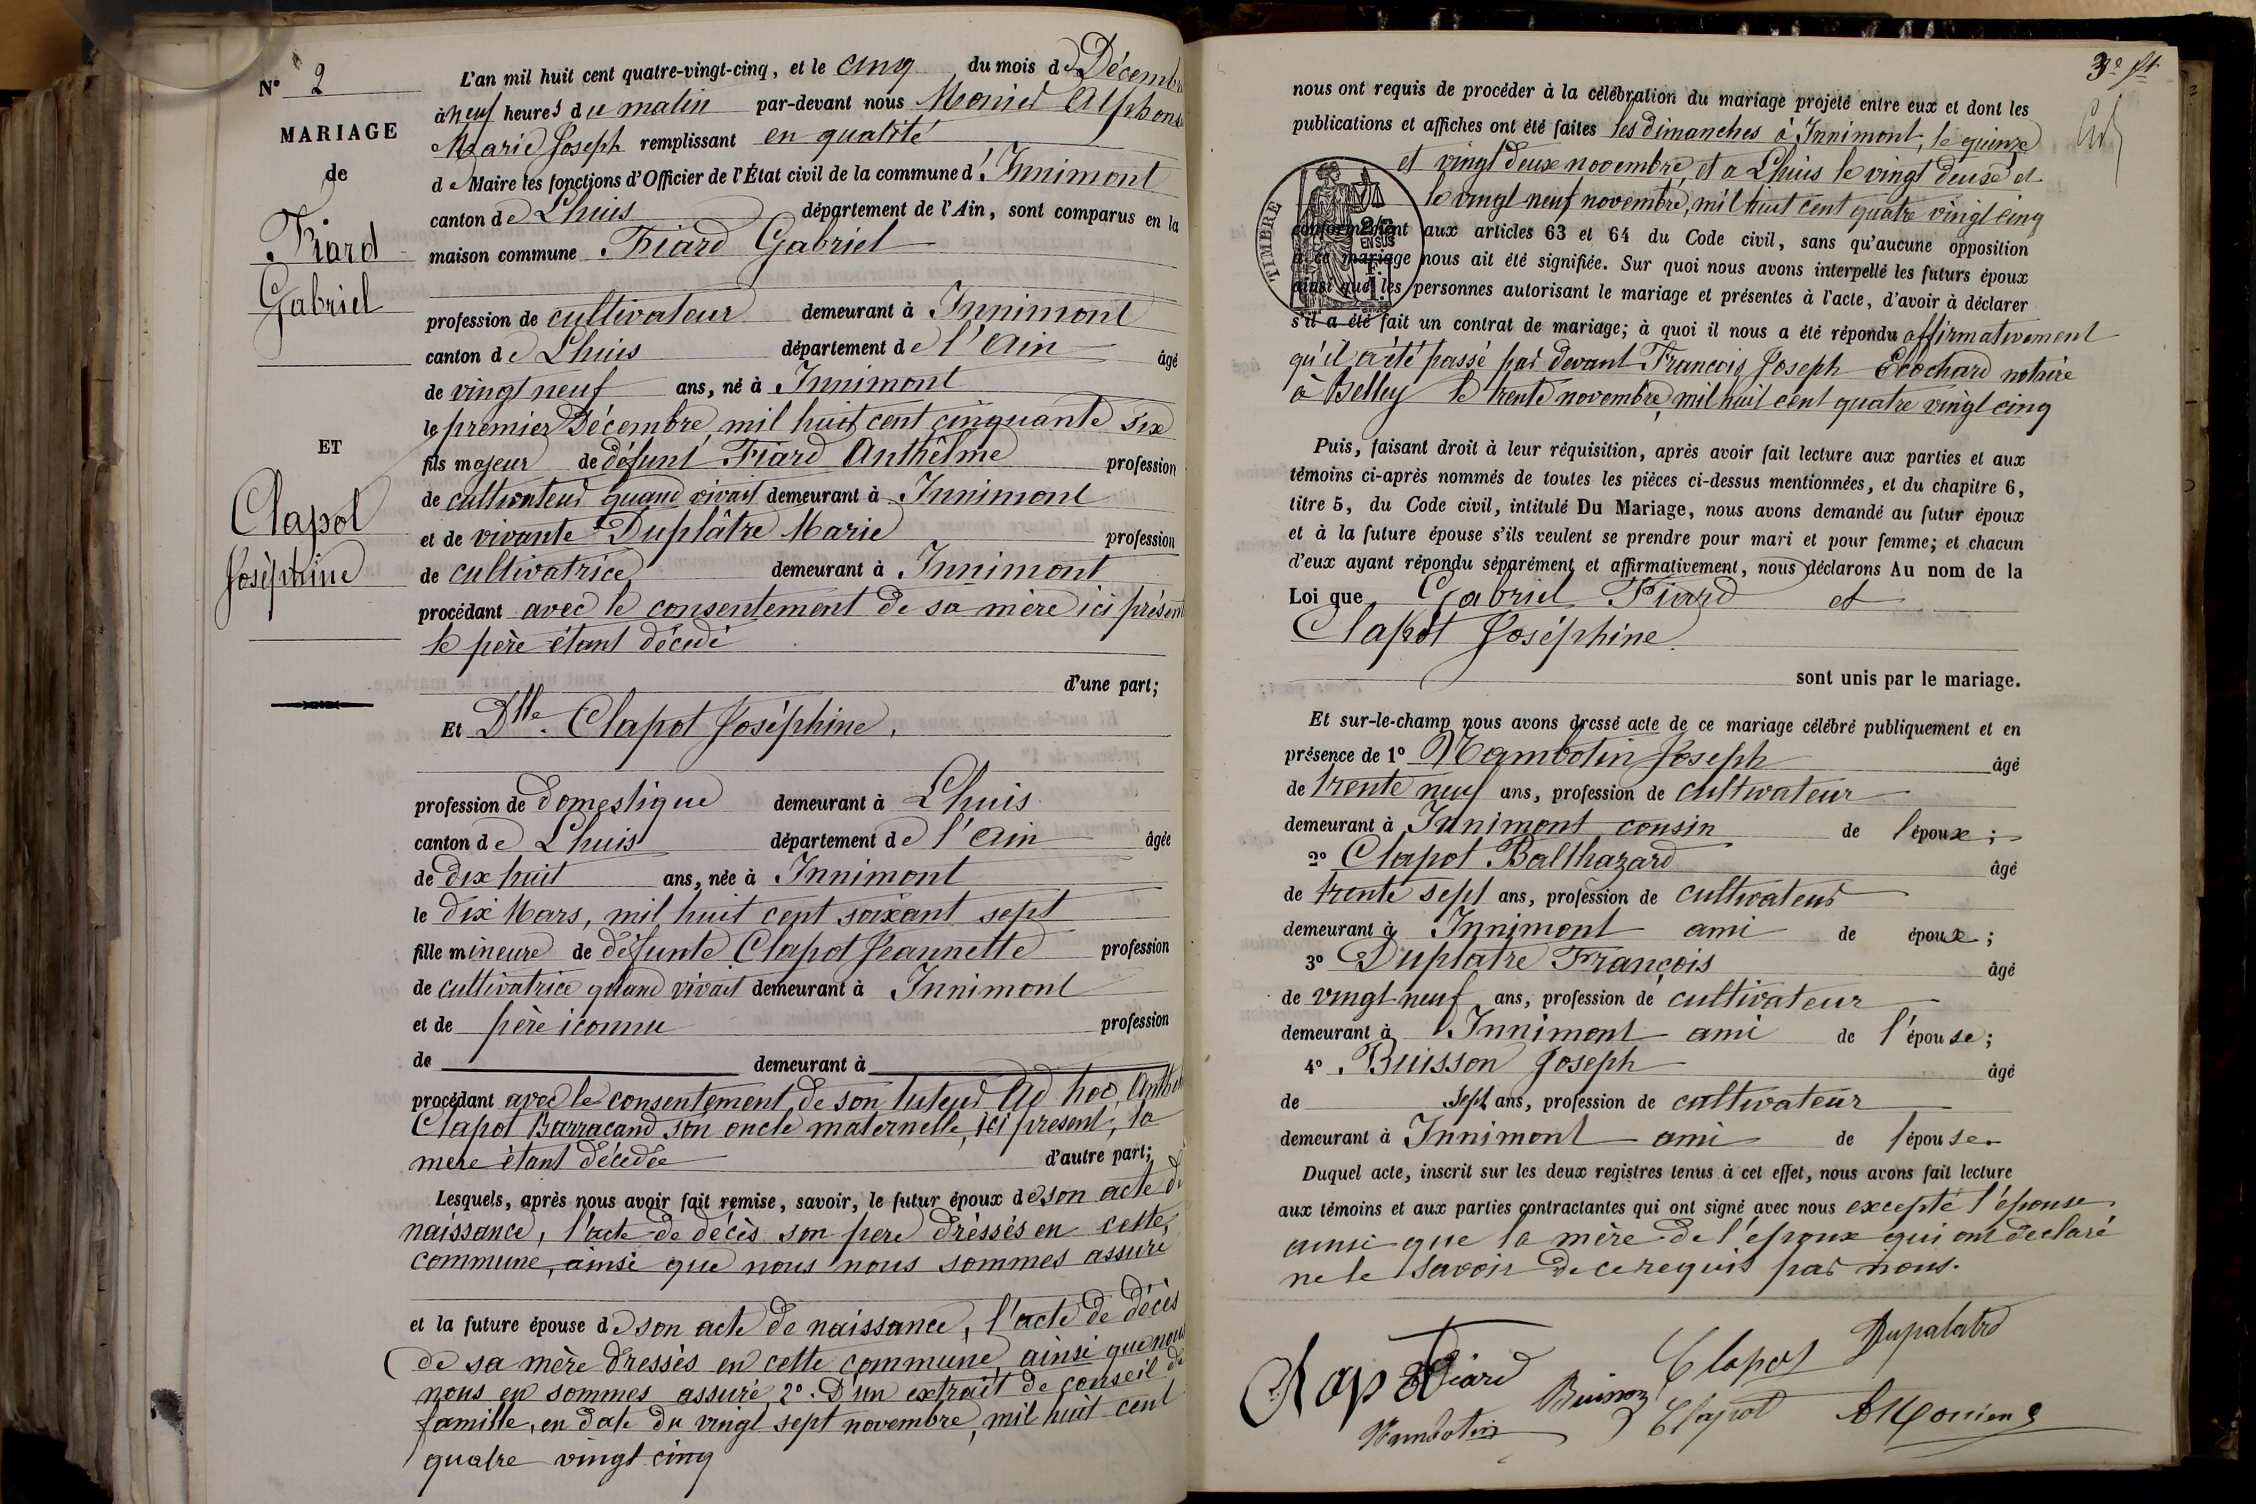 N° 2
MARIAGE
de
Fiard
Gabriel
ET
Clapot
Joséphine
L'an mil huit cent quatre-vingt-cinq, et le cinq du mois de Décembre
à neuf heures du matin par-devant nous Alphonse
Marie Joseph remplissant en qualité
de Maire les fonctions d'Officier de l'État civil de la commune d'Innimont
canton de Lhuis département de l'Ain, sont comparus en la
maison commune Fiard Gabriel
profession de cultivateur demeurant à Innimont
canton de Lhuis département de l'Ain âgé
de vingt neuf ans, né à Innimont
le premier Décembre mil huit cent cinquante six
fils majeur de défunt Fiard Anthelme profession
de cultivateur quand vivait demeurant à Innimont
et de vivante Duplâtre Marie profession
de cultivatrice demeurant à Innimont
procédant avec le consentement de sa mère ici présente
le père étant décédé
d'une part;
Et Dlle. Clapot Joséphine.
profession de domestique demeurant à Lhuis
canton de Lhuis département de l'Ain âgée
de dix huit ans, née à Innimont
le dix Mars, mil huit cent soixant sept
fille mineure de défunte Clapot Jeannette profession
de cultivatrice quand vivait demeurant à Innimont
et de père iconnu profession
de demeurant à
procédant avec le consentement de son tuteur Ad hoc,
Clapot Barracand son oncle maternelle, ici present, la
mere étant décedée d'autre part;
Lesquels, après nous avoir fait remise, savoir, le futur époux de son acte de
naissance, l'acte de décès son pere dréssés en cette
commune, ainsi que nous nous sommes assuré
et la future épouse de son acte de naissance, l'acte de décès
de sa mère dressés en cette commune, ainsi que nous
nous en sommes assuré, 2°. D'un extrait de conseil de
famille, en date du vingt sept novembre, mil huit cent
quatre vingt cinq
nous ont requis de procéder à la célébration du mariage projeté entre eux et dont les
publications et affiches ont été faites les dimanches à Innimont, le quinze
et vingt deux novembre, et a Lhuis le vingt deux et
le vingt neuf novembre, mil huit cent quatre vingt cinq
TIMBRE
2/10
EN SUS
conformément aux articles 63 et 64 du Code civil, sans qu'aucune opposition
à ce mariage nous ait été signifiée. Sur quoi nous avons interpellé les futurs époux
ainsi que les personnes autorisant le mariage et présentes à l'acte, d'avoir à déclarer
s'il a été fait un contrat de mariage; à quoi il nous a été répondu affirmativement
qu'il a été passé par devant François Joseph Ecochard notaire
à Belley le trente novembre, mil huit cent quatre vingt cinq
Puis, faisant droit à leur réquisition, après avoir fait lecture aux parties et aux
témoins ci-après nommés de toutes les pièces ci-dessus mentionnées, et du chapitre 6,
titre 5, du Code civil, intitulé Du Mariage, nous avons demandé au futur époux
et à la future épouse s'ils veulent se prendre pour mari et pour femme; et chacun
d'eux ayant répondu séparément et affirmativement, nous déclarons Au nom de la
Loi que Gabriel Fiard et
Clapot Joséphine
sont unis par le mariage.
Et sur-le-champ nous avons dressé acte de ce mariage célébré publiquement et en
présence de 1° Mambotin Joseph âgé
de trente neuf ans, profession de cultivateur
demeurant à Innimont cousin de l'époux;
2° Clapot Balthazard âgé
de trente sept ans, profession de cultivateur
demeurant à Innimont ami de époux;
3° Duplatre François âgé
de vingt neuf ans, profession de cultivateur
demeurant à Innimont ami de l'épouse;
4° Buisson Joseph âgé
de sept ans, profession de cultivateur
demeurant à Innimont ami de l'épouse.
Duquel acte, inscrit sur les deux registres tenus à cet effet, nous avons fait lecture
aux témoins et aux parties contractantes qui ont signé avec nous excepté l'épouse
ainsi que la mère de l'époux qui ont declaré
ne le savoir de ce requis par nous.
Clapot Fiard Clapot Dupalatre
Mambotin Buisson Clapot